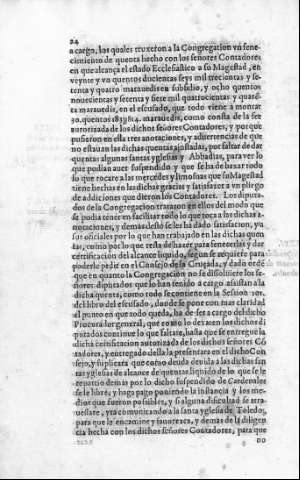 24
a cargo, los quales truxeron a la Congregacion vn fene-
cimiento de quenta hecho con los señores Contadores
en que alcança el estado Ecclesiastico a su Magestad, en
veynte y vn quentos ducientas seys mil trecientas y se-
tenta y quatro marauedis en subsidio, y ocho quentos
nouecientas y setenta y siete mil quatrocientas y
marauedis, en el escusado, que todo viene a montar
30. quentos marauedis, como consta de la see
autorizada de los dichos señores Contadores, y porque
pusieron en ella tres anotaciones, y aduertencias de que
no estauan las dichas quentas ajustadas, por faltar de dar
quentas algunas santas yglesias y Abbadias, para ver lo
que podian auer suspendido y que se ha de baxar todo
lo que tocare a las mercedes y limosnas que su Magestad
tiene hechas en las dichas gracias y satisfacer a vn pliego
de addiciones que dieron los Contadores. Los diputa-
dos de la Congregacion trataron en ellos del modo que
se podia tener en facilitar todo lo que toca a los dichas a-
notaciones, y demas desto se les ha dado satisfacion, ya
sus oficiales por lo que han trabajado en las dichas quen
tas, como por lo que resta de hazer para fenecerlas y dar
certificacion del alcance liquido, segun se requiere para
poderle pedir en el Consejo de la Cruzada, y dado orde
que en quanto la Congregacion no se dissoluiere los se-
ñores diputados que lo han sido a cargo assistan a la
dicha quenta, como todo se contiene en la Session
del libro del escusado, donde se pone con mas claridad
el punto en que todo queda, ha de ser a cargo del dicho
Procurador general, que como lo dexaren los dichos di
putados continue lo que faltare, hasta que se entregue la
dicha certificacion autorizada de los dichos señores Co
tadores, y entregado della la presentara en el dicho Con
sejo, y suplicara que como deuda deuida a las dichas san
tas yglesias de alcance de quentas liquido de lo que se le
remitio demas por lo dicho suspendido de Cardenales
se le libre, y haga pago poniendo la instancia y los me-
dios que fueron possibles, y si alguna dificultad se atra-
uessare, yra comunicando a la santa yglesia de Toledo,
para que la encamine y fauorezca, y demas de la diligen
cia hecha con los dichos señores Contadores, para que
no